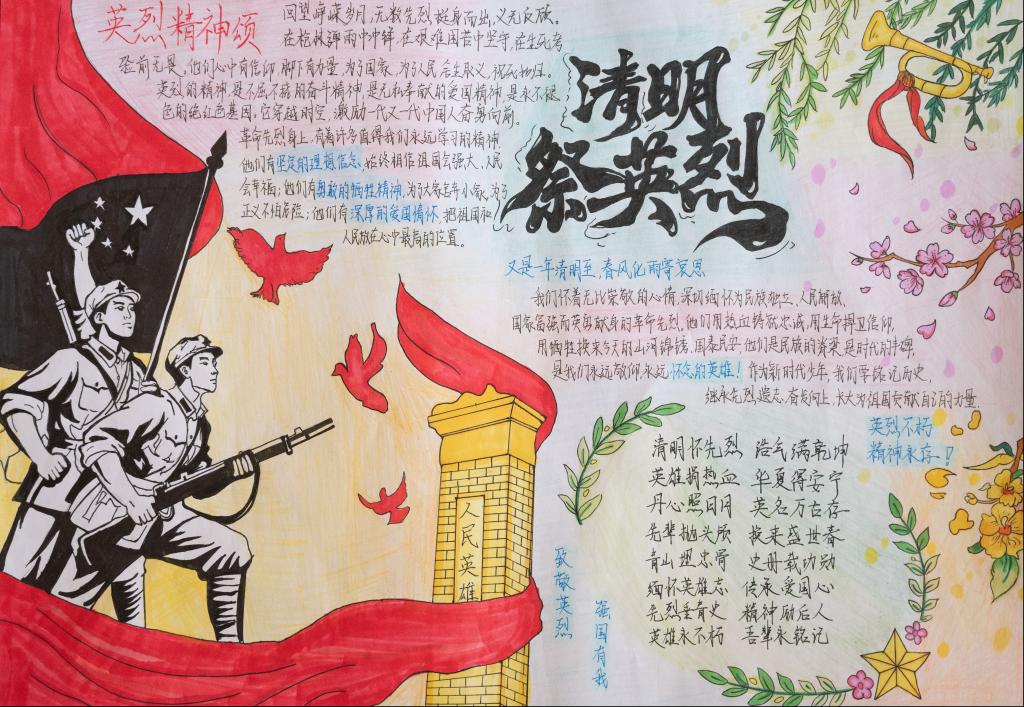 英烈精神颂
回望峥嵘岁月,无数先烈挺身而出,义无反顾。
在枪林弹雨中冲锋,在艰难困苦中坚守,在生死考
验前无畏。他们心中有信仰,脚下有力量,为了国家,为了人民舍生取义,视死如归。
英烈的精神,是不屈不挠的奋斗精神,是无私奉献的爱国精神,是永不褪
色的绝红色基因,它穿越时空,激励一代又一代中国人奋勇向前。
革命先烈身上,有着许多值得我们永远学习的精神,
他们有坚定的理想信念,始终相信祖国会强大、人民
会幸福;他们有勇敢的牺牲精神,为了大家忘弃小家,为了
正义不怕危险;他们有深厚的爱国情怀,把祖国和
人民放在心中最高的位置。
清明
祭英烈
又是一年清明至,春风化雨寄哀思
我们怀着无比崇敬的心情,深切缅怀为民族独立、人民解放、
国家富强而英勇献身的革命先烈。他们用热血铸就忠诚,用生命捍卫信仰,
用牺牲换来今天的山河锦绣、国泰民安。他们是民族的脊梁,是时代的丰碑,
是我们永远敬仰、永远怀念的英雄!作为新时代少年,我们要铭记历史,
继承先烈遗志,奋发向上,长大为祖国贡献自己的力量
英烈不朽
精神永存!
清明怀先烈 浩气满乾坤
英雄捐热血 华夏得安宁
丹心照日月 英名万古存
先辈抛头颅 换来盛世春
青山埋忠骨 史册载功勋
缅怀英雄志 传承爱国心
先烈垂青史 精神励后人
英雄永不朽 吾辈永铭记
人民英雄
致敬英烈
强国有我